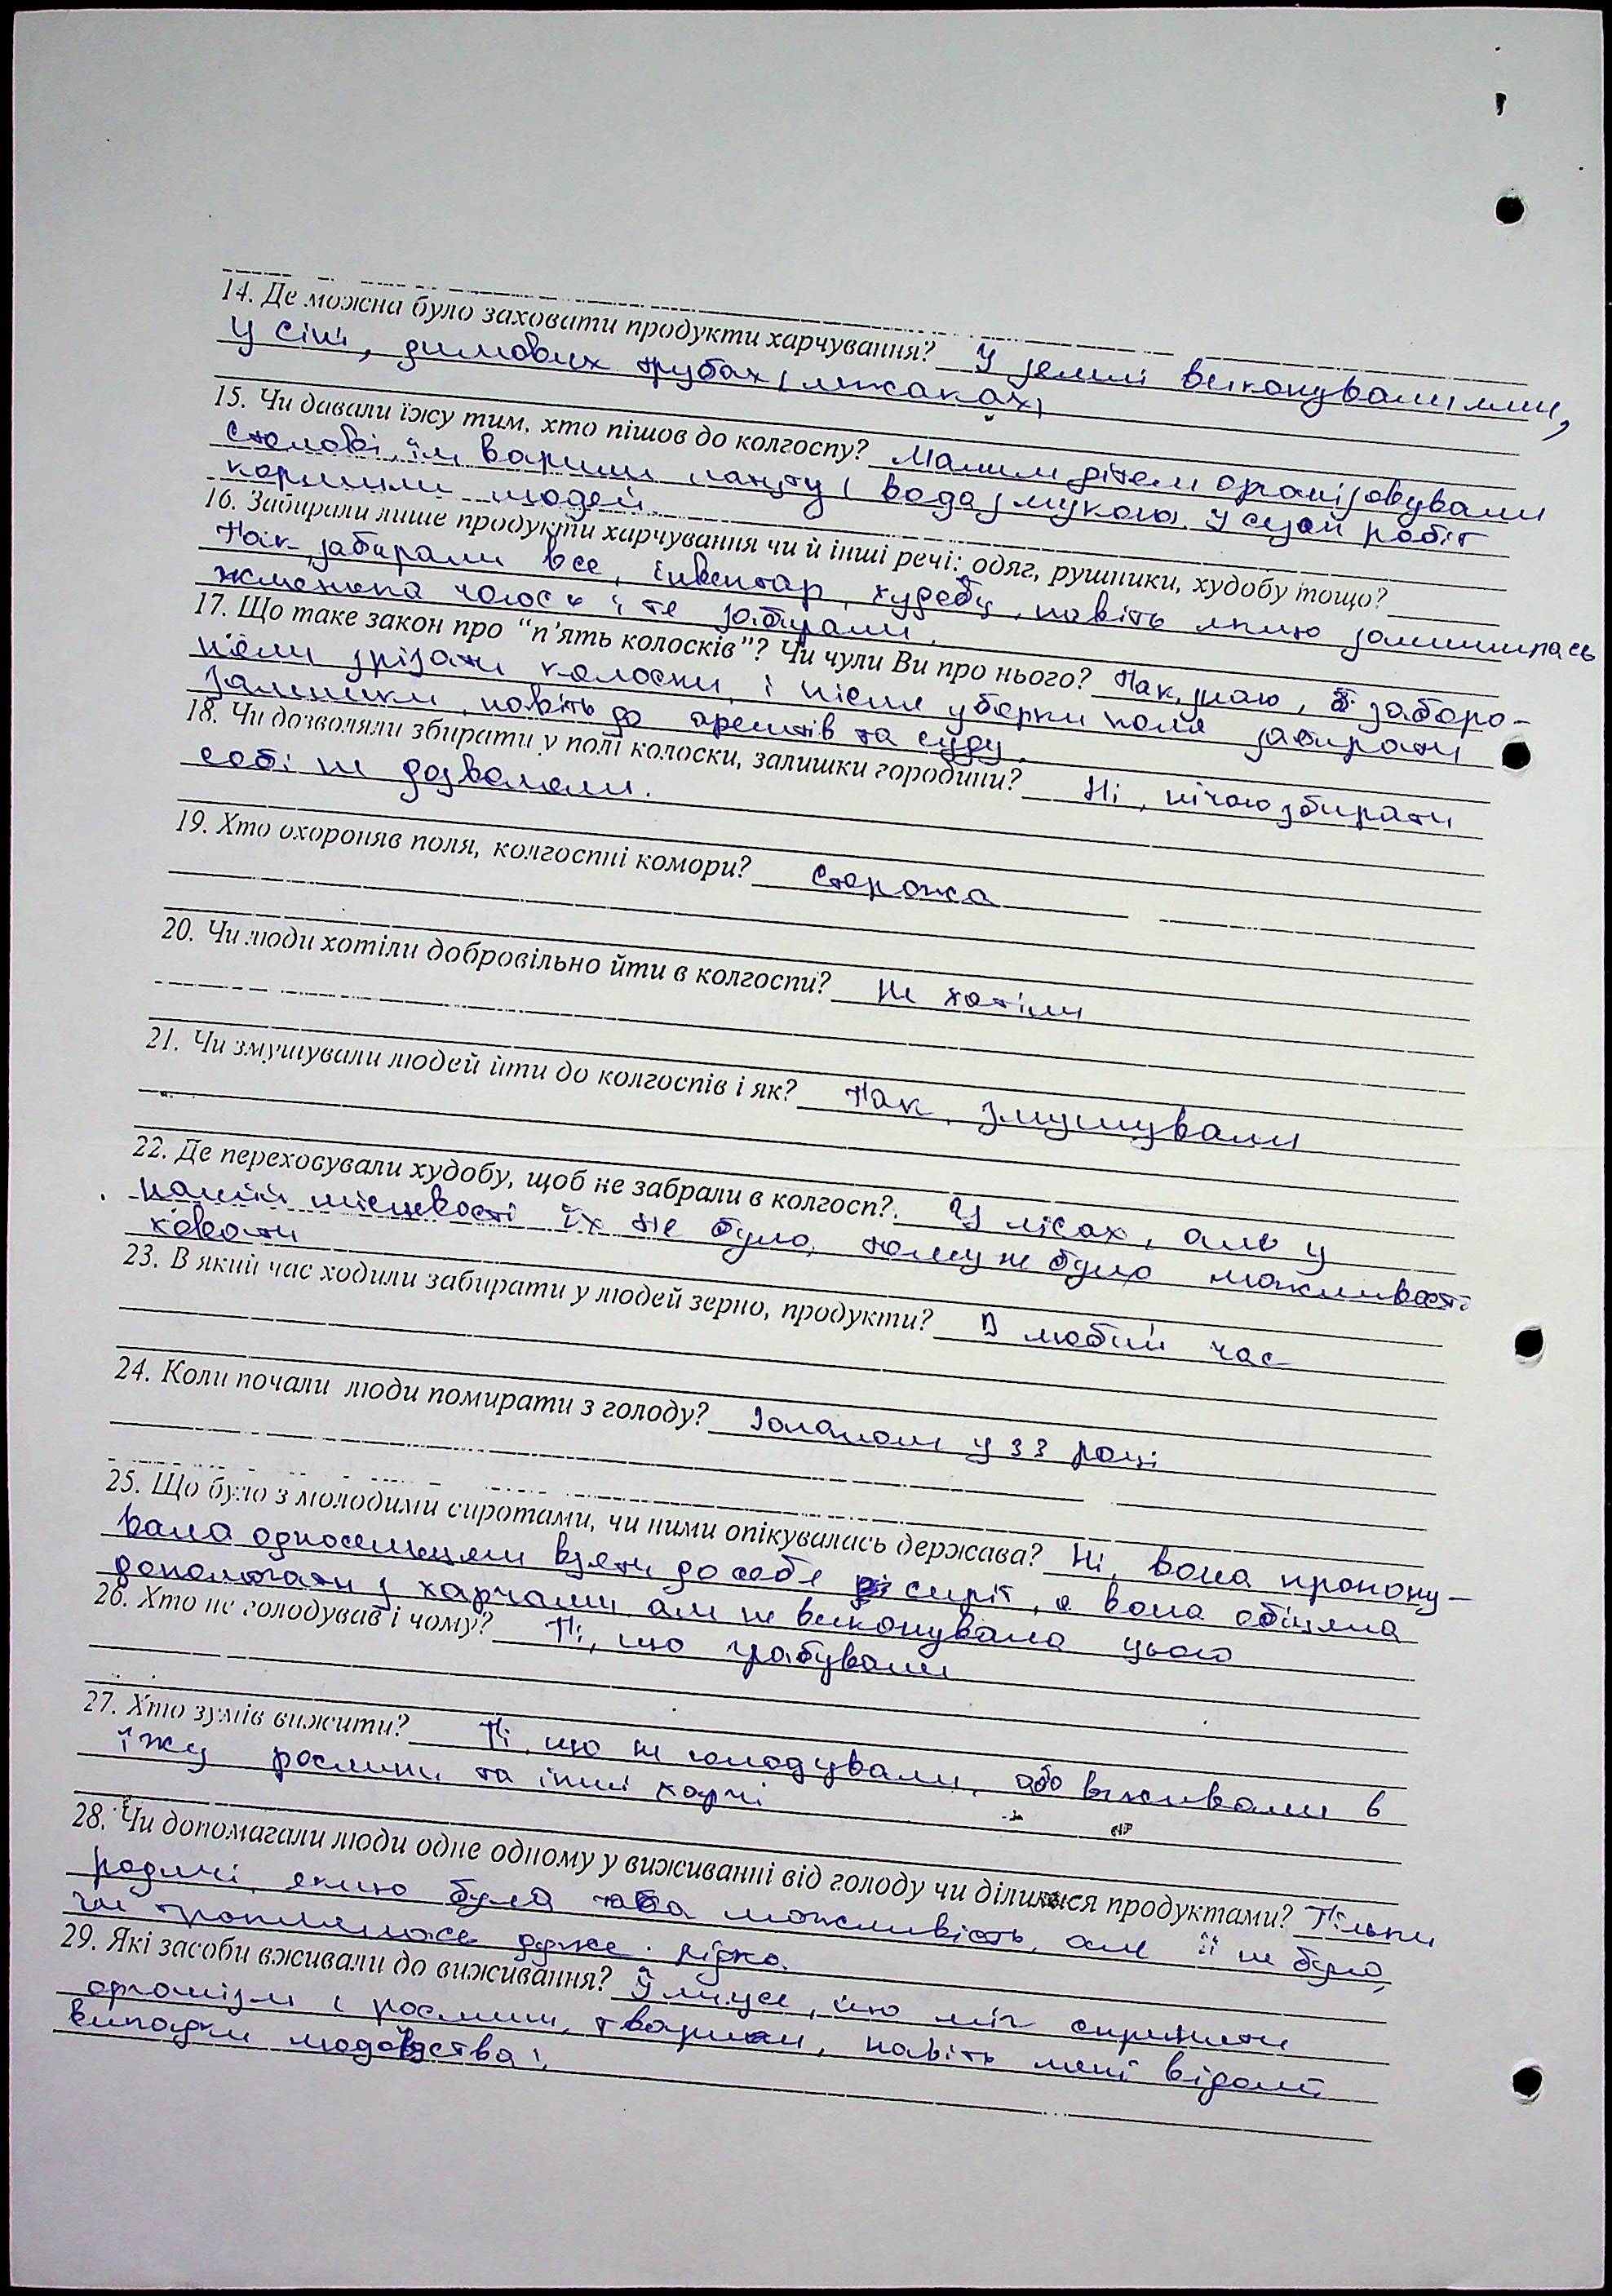 14. Де можна було заховати продукти харчування? У землі викопували ями,
У сіні, димових трубах, лижаках,
15. Чи давали їжу тим, хто пішов до колгоспу? Малим дітям організовували
столові, їм варили лапшу (вода з мукою). У сезон робіт
кормили людей.
16. Забирали лише продукти харчування чи й інші речі: одяг, рушники, худобу тощо?
Так, забирали все, інвентар, худобу, навіть якщо залишилась
жменька чогось і те забирали.
17. Що таке закон про "п'ять колосків"? Чи чули Ви про нього? Так, знаю, заборо-
няли зрізати колоски, і після уборки поля забирати
залишки, навіть до арештів та суду.
18. Чи дозволяли збирати у полі колоски, залишки городини? Ні, нічого збирати
собі не дозволяли.
19. Хто охороняв поля, колгоспні комори? Сторожа
20. Чи люди хотіли добровільно йти в колгоспи? Не хотіли
21. Чи змушували людей йти до колгоспів і як? Так, змушували
22. Де переховували худобу, щоб не забрали в колгосп? У лісах, але у
нашій місцевості їх не було, тому не було можливості
ховати
23. В який час ходили забирати у людей зерно, продукти? В любий час
24. Коли почали люди помирати з голоду? Загалом у 33 році
25. Що було з молодими сиротами, чи ними опікувалась держава? Ні, вона пропону-
вала односельцям взяти до себе сиріт, а вона обіцяла
допомагати з харчами, але не виконувала цього
26. Хто не голодував і чому? Ті, що грабували
27. Хто зумів вижити? Ті, що не голодували, або вживали в
їжу рослини та інші харчі
28. Чи допомагали люди одне одному у виживанні від голоду чи ділилися продуктами? Тільки
родичі, якщо була така можливість, але її не було,
чи траплялось дуже рідко.
29. Які засоби вживали до виживання? Усе, що міг сприйняти
організм: рослини, тварини, навіть мені відомі
випадки людоїдства.